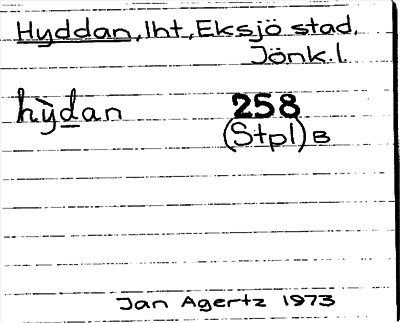 Hyddan, lht, Eksjö stad,
Jönk.l.
hỳd̲an 258
(Stpl) B
Jan Agertz 1973